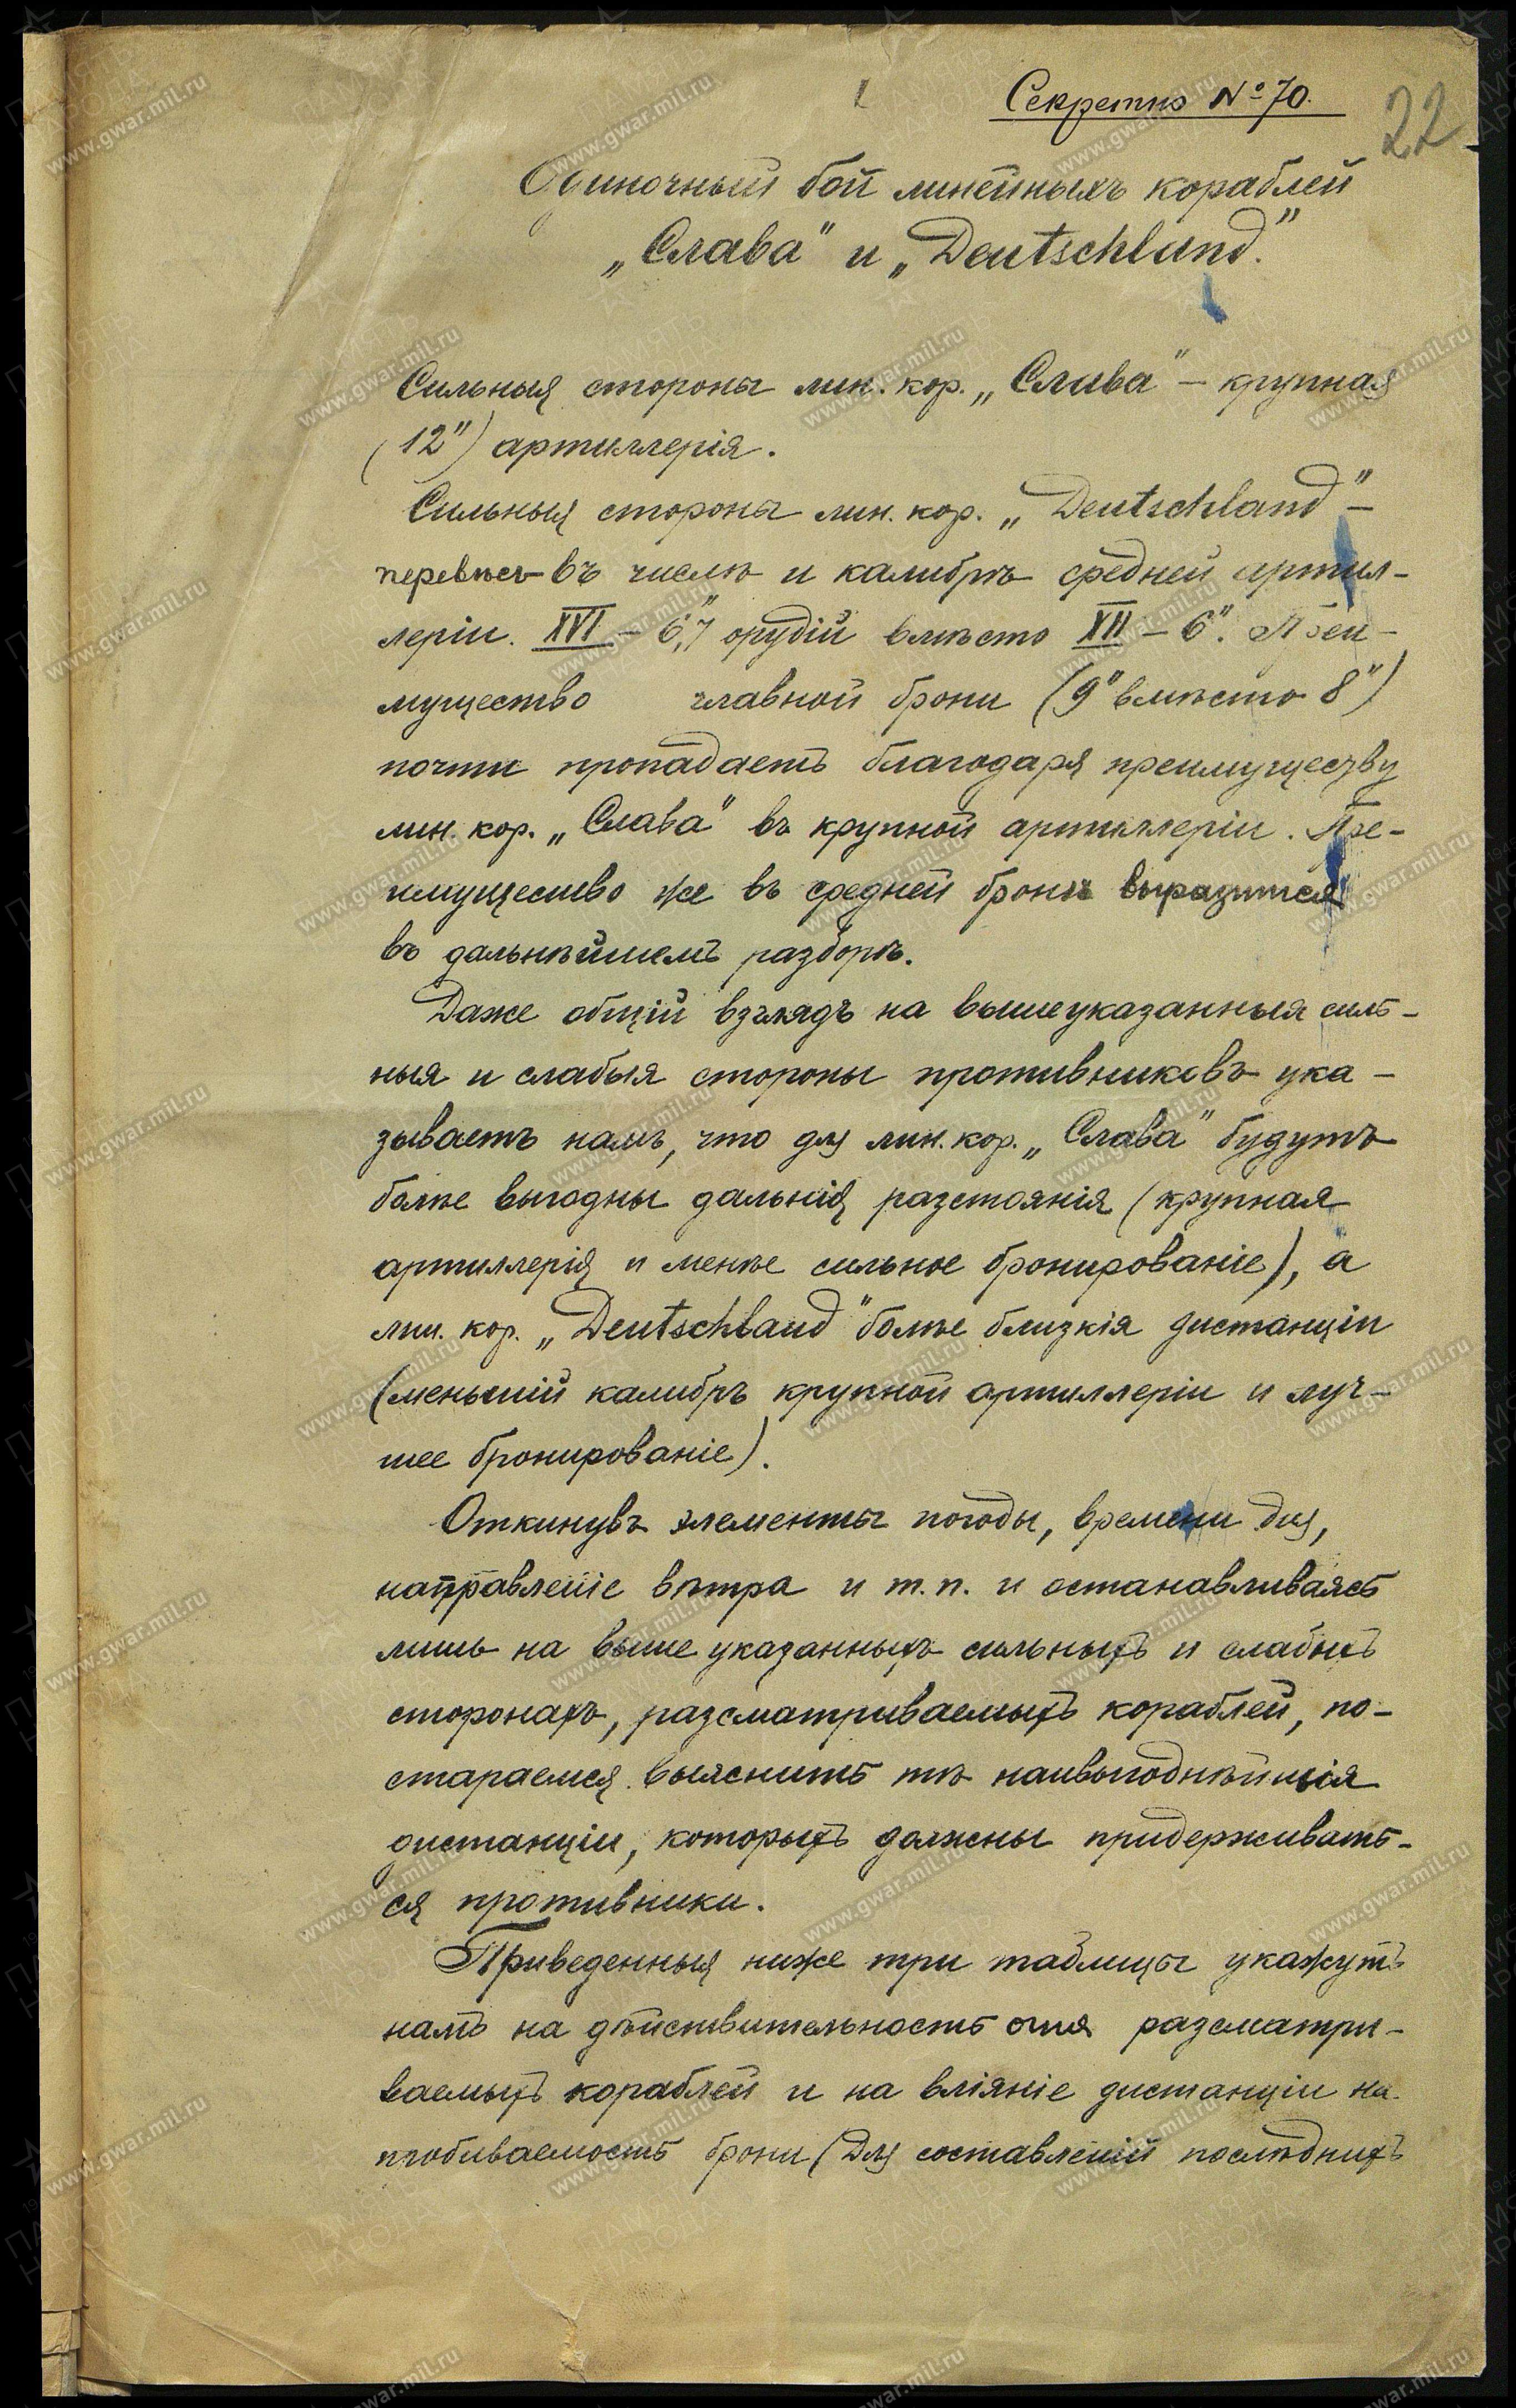 Секретно № 70.
22
Одиночный бой линейныхъ кораблей
„Слава" и „Deutschland".
Сильныя стороны лин. кор. „Слава" – крупная
(12") артиллерія.
Сильныя стороны лин. кор. „Deutschland" –
перевѣсъ въ числѣ и калибрѣ средней артил-
леріи. XVI – 6,7" орудій вмѣсто XII – 6". Преи-
мущество главной брони (9" вмѣсто 8")
почти пропадаетъ благодаря преимуществу
лин. кор. „Слава" въ крупной артиллеріи. Пре-
имущество же въ средней бронѣ выразится
въ дальнѣйшемъ разборѣ.
Даже общій взглядъ на вышеуказанныя силь-
ныя и слабыя стороны противниковъ ука-
зываетъ намъ, что для лин. кор. „Слава" будутъ
болѣе выгодны дальнія разстоянія (крупная
артиллерія и менѣе сильное бронированіе), а
лин. кор. „Deutschland" болѣе близкія дистанціи
(меньшій калибръ крупной артиллеріи и луч-
шее бронированіе).
Откинувъ элементы погоды, времени дня,
направленіе вѣтра и т.п. и останавливаясь
лишь на выше указанныхъ сильныхъ и слабыхъ
сторонахъ, разсматриваемыхъ кораблей, по-
стараемся выяснить тѣ наивыгоднѣйшія
дистанціи, которыхъ должны придерживать-
ся противники.
Приведенныя ниже три таблицы укажутъ
намъ на дѣйствительность огня разсматри-
ваемыхъ кораблей и на вліяніе дистанціи на
пробиваемость брони (Для составленій послѣднихъ